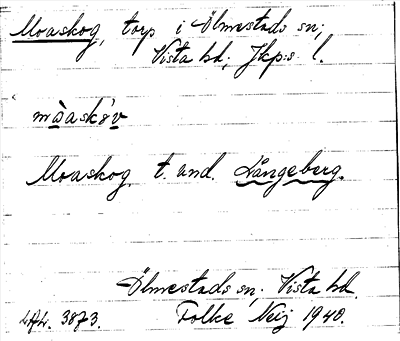 Moaskog, torp i Ölmestads sn;
Vista hd; Jkp:s l.
mòaskóv
Moaskog. t. und. Långeberg.
Ölmestads sn; Vista hd.
3873. Folke Neij 1940.